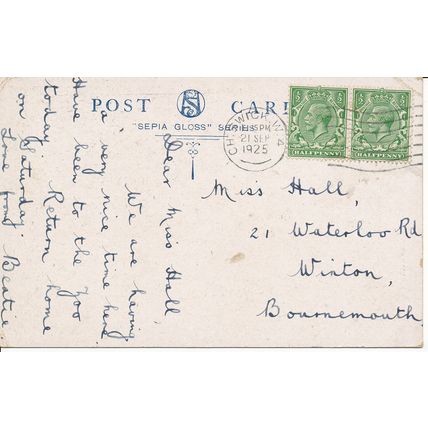 POST CARD
"SEPIA GLOSS" SERIES
CHISWICK W.4
15PM
21 SEP
1925
HALFPENNY
HALFPENNY
Dear Miss Hall
We are having
a very nice time here
Have been to the Zoo
today. Return home
on Saturday
Love from Beatie
Miss Hall,
21 Waterloo Rd
Winton,
Bournemouth